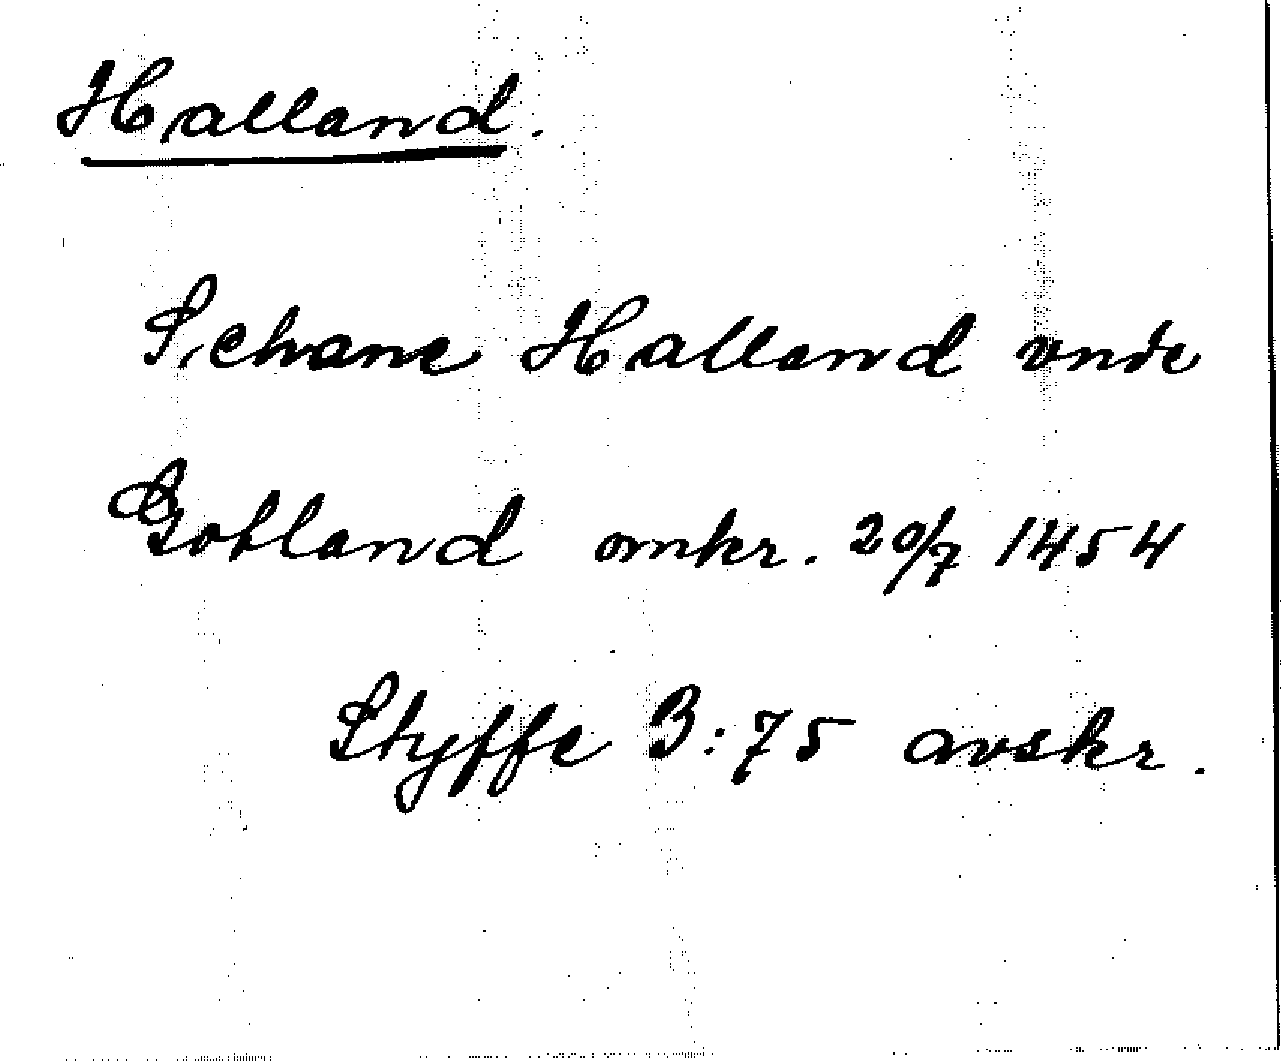 Halland.
Schane Halland vnde
Gotland omkr. 20/7 1454
Styffe 3:75 avskr.